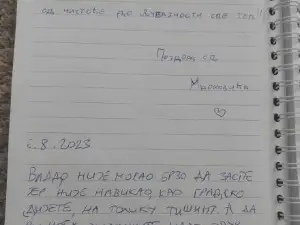 од чистоће до љубазности све топ!
Поздрав од
Марковића
8.2023
ВЛАДО НИЈЕ МОГАО БРЗО ДА ЗАСПЕ
ЈЕР НИЈЕ НАВИКАО, КАО ГРАДСКО
ДИЈЕТЕ, НА ТОЛИКУ ТИШИНУ. А ДА